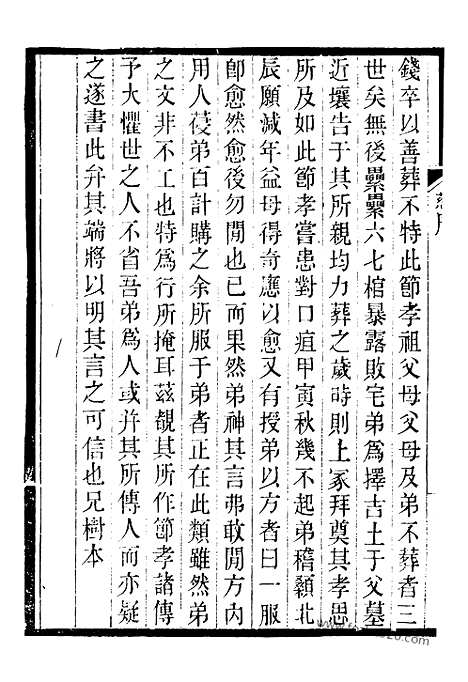 錢卒以善葬不特此節孝祖父母父母及弟不葬者三
世矣無後纍纍六七棺暴露敗宅弟為擇吉土于父墓
近壤告于其所親均力葬之歲時則上冢拜奠其孝思
所及如此節孝嘗患對口疽甲寅秋幾不起弟稽顙北
辰願減年益母得奇應以愈又有授弟以方者曰一服
卽愈然愈後勿閒也已而果然弟神其言弗敢閒方內
用人葠弟百計購之余所服于弟者正在此類雖然弟
之文非不工也特為行所掩耳茲覩其所作節孝諸傳
予大懼世之人不省吾弟為人或并其所傳人而亦疑
之遂書此弁其端將以明其言之可信也兄樹本